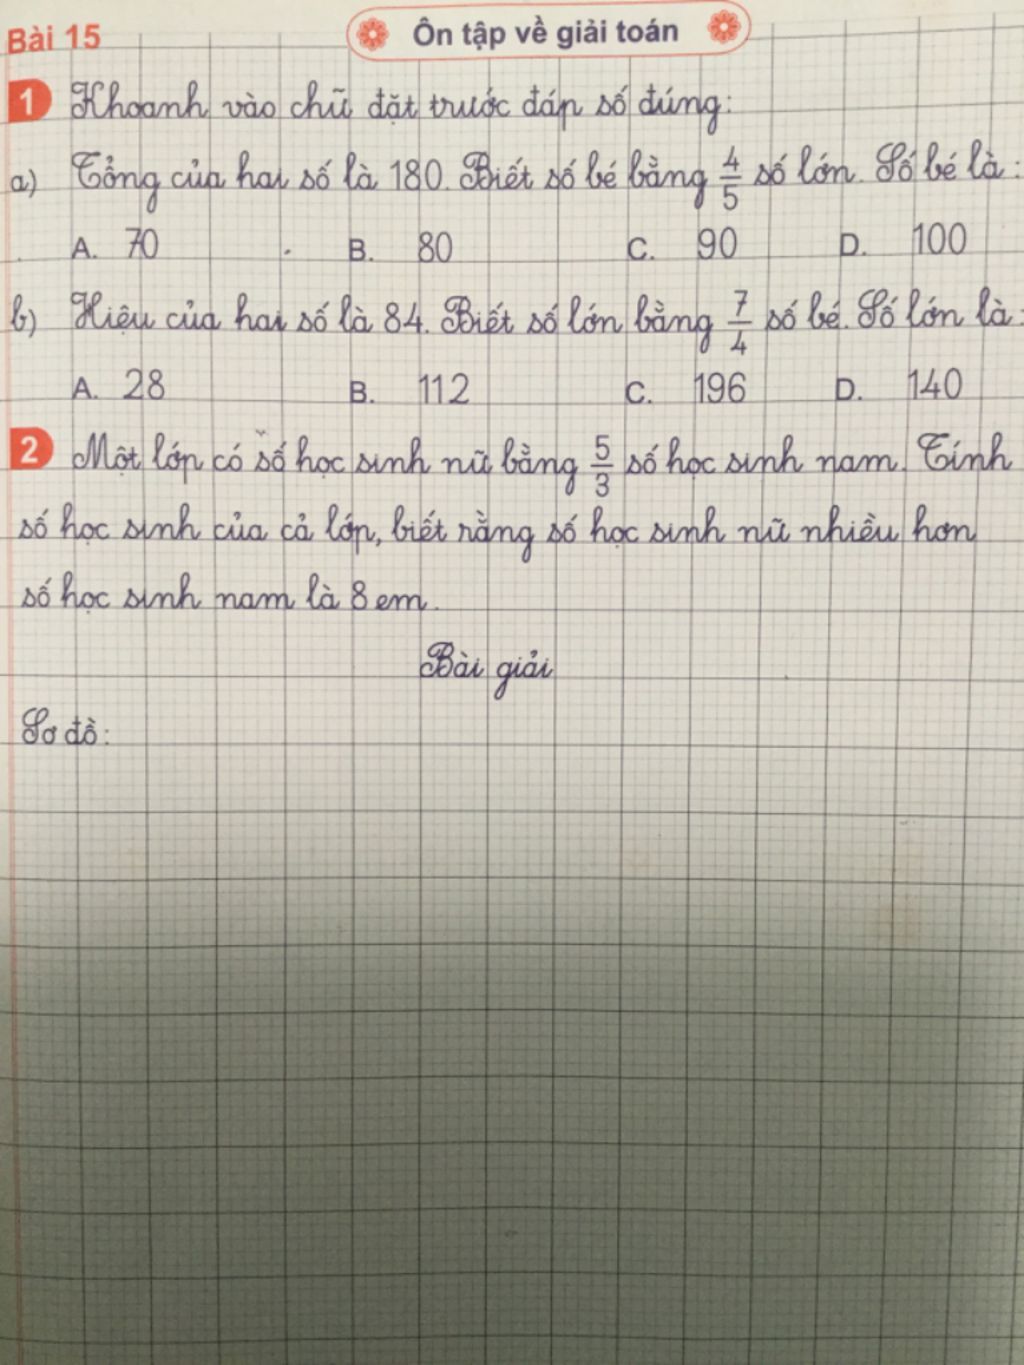 Bài 15
Ôn tập về giải toán
1 Khoanh vào chữ đặt trước đáp số đúng:
a) Tổng của hai số là 180. Biết số bé bằng 4/5 số lớn. Số bé là:
A. 70 B. 80 C. 90 D. 100
b) Hiệu của hai số là 84. Biết số lớn bằng 7/4 số bé. Số lớn là:
A. 28 B. 112 C. 196 D. 140
2 Một lớp có số học sinh nữ bằng 5/3 số học sinh nam. Tính
số học sinh của cả lớp, biết rằng số học sinh nữ nhiều hơn
số học sinh nam là 8 em.
Bài giải
Sơ đồ: